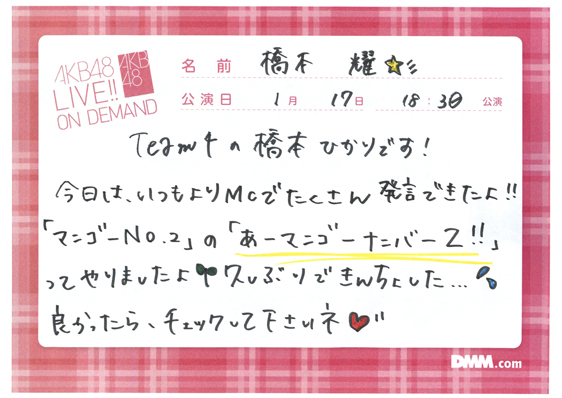 AKB48
LIVE!!
ON DEMAND
AKB
48
名前 橋本 耀
公演日 1月 17日 18:30 公演
Team4の橋本ひかりです!
今日は、いつもよりMCでたくさん発言できたよ!!
「マンゴーNO.2」の「あーマンゴーナンバー2!!」
ってやりましたよ 久しぶりできんちょした...
良かったら、チェックして下さいネ
DMM.com